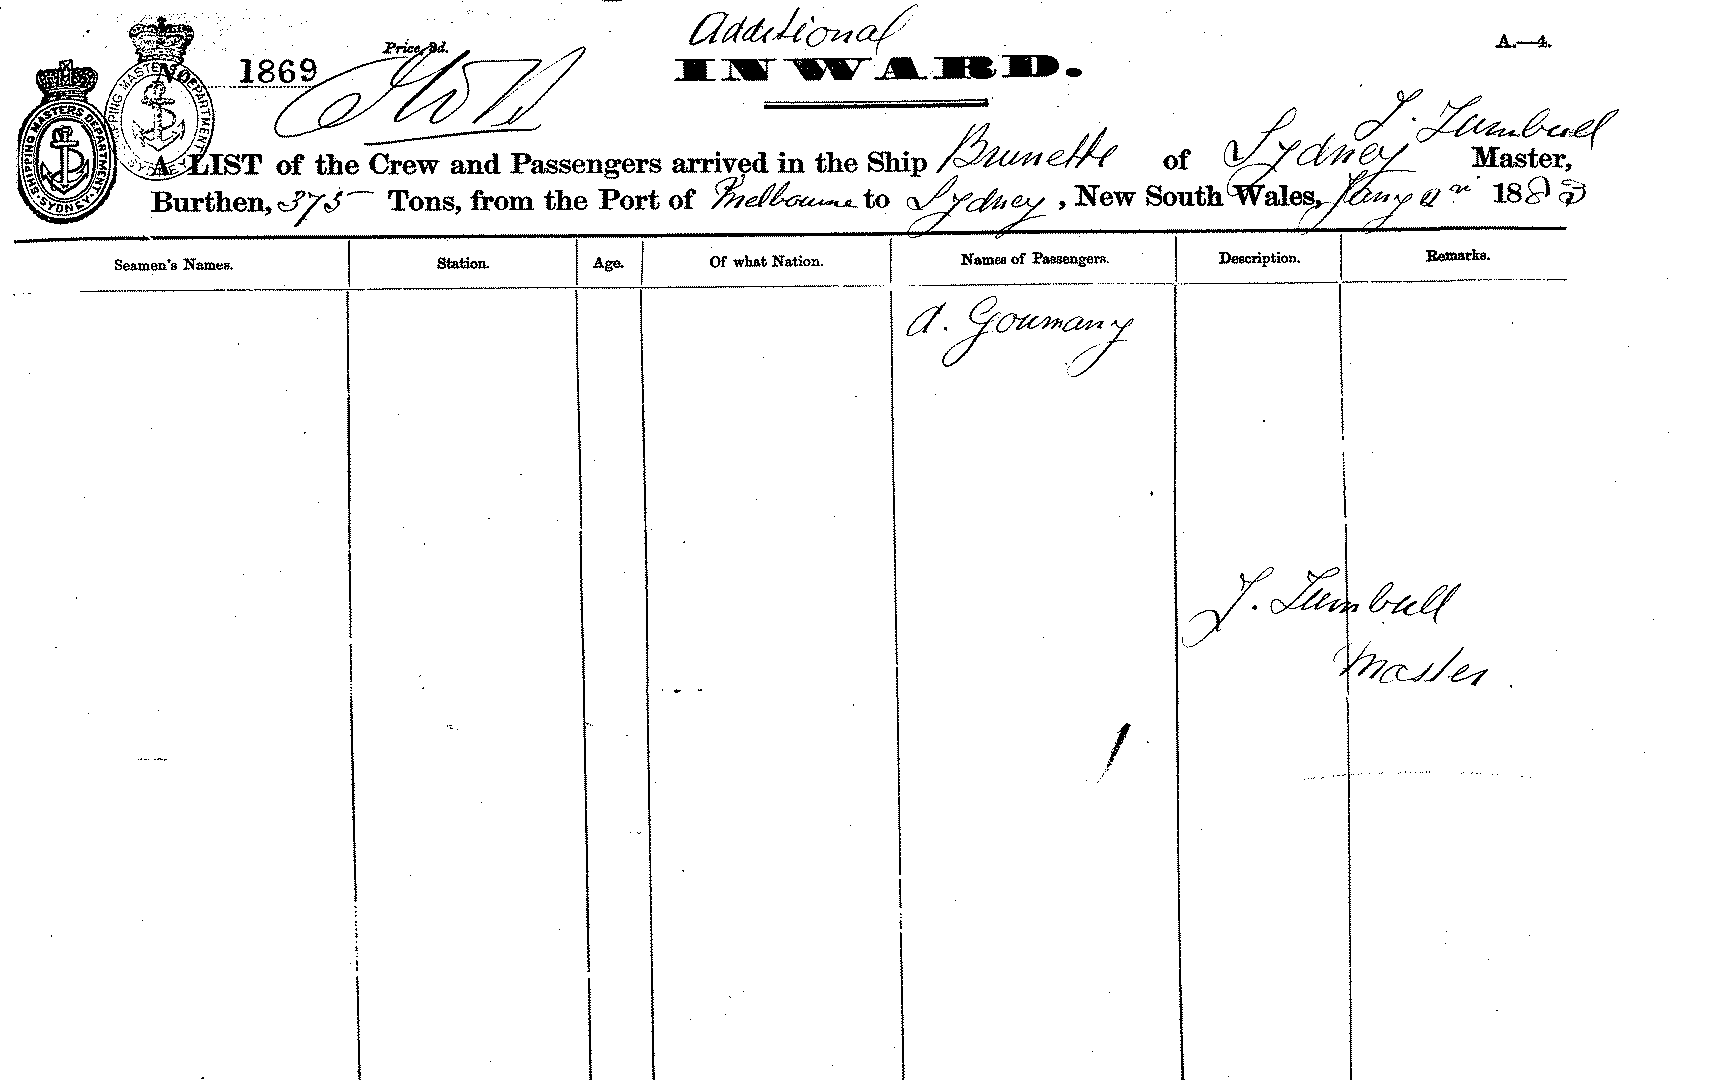 Additional
Price, 3d.
A.—4.
No 1869
INWARD.
SHIPPING MASTERS DEPARTMENT SYDNEY
SHIPPING MASTERS DEPARTMENT SYDNEY
J. Turnbull
A LIST of the Crew and Passengers arrived in the Ship Brunette of Sydney Master,
Burthen, 375 Tons, from the Port of Melbourne to Sydney, New South Wales, 1883
Seamen's Names. Station. Age. Of what Nation. Names of Passengers. Description. Remarks.
A. Goumany
J. Turnbull
Master